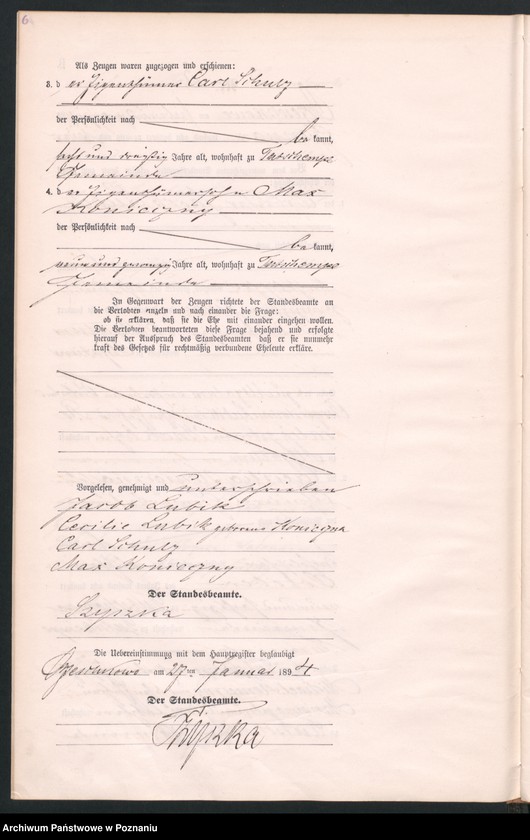 6
Als Zeugen waren zugezogen und erschienen:
3. d er Eigenthümer Carl Schulz
der Persönlichkeit nach
be kannt,
sechs und dreißig Jahre alt, wohnhaft zu
Gemeinde
4. d er Eigenthümersohn Max
Konieczny
der Persönlichkeit nach
be kannt,
neun und zwanzig Jahre alt, wohnhaft zu
Gemeinde
In Gegenwart der Zeugen richtete der Standesbeamte an
die Verlobten einzeln und nach einander die Frage:
ob sie erklären, daß sie die Ehe mit einander eingehen wollen.
Die Verlobten beantworteten diese Frage bejahend und erfolgte
hierauf der Ausspruch des Standesbeamten, daß er sie nunmehr
kraft des Gesetzes für rechtmäßig verbundene Eheleute erkläre.
Vorgelesen, genehmigt und unterschrieben
Jacob Lubik
Cecilie Lubik geborene Konieczna
Carl Schulz
Max Konieczny
Der Standesbeamte.
Szyszka
Die Uebereinstimmung mit dem Hauptregister beglaubigt
am 27 ten Januar 1894.
Der Standesbeamte.
Szyszka
Archiwum Państwowe w Poznaniu